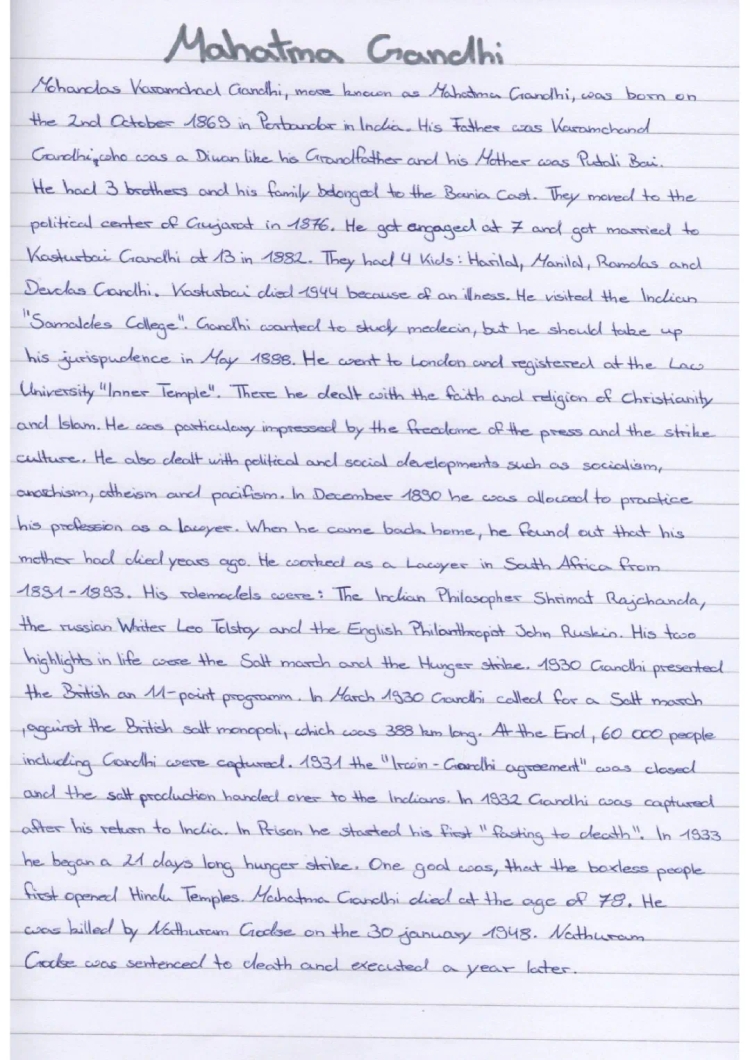 Mahatma Gandhi
Mohandas Karamchad Gandhi, more known as Mahatma Gandhi, was born on
the 2nd October 1869 in Porbandar in India. His Father was Karamchand
Gandhi, who was a Diwan like his Grandfather and his Mother was Putali Bai.
He had 3 brothers and his family belonged to the Bania Cast. They moved to the
political center of Gujarat in 1876. He got engaged at 7 and got married to
Kasturbai Gandhi at 13 in 1882. They had 4 Kids: Harilal, Manilal, Ramdas and
Devdas Gandhi. Kasturbai died 1944 because of an illness. He visited the Indian
"Samaldes College". Gandhi wanted to study medecin, but he should take up
his jurispudence in May 1888. He went to London and registered at the Law
University "Inner Temple". There he dealt with the faith and religion of Christianity
and Islam. He was particulary impressed by the freedome of the press and the strike
culture. He also dealt with political and social developments such as socialism,
anarchism, atheism and pacifism. In December 1890 he was allowed to practice
his profession as a lawyer. When he came back home, he found out that his
mother had died years ago. He worked as a Lawyer in South Africa from
1891-1893. His rolemodels were: The Indian Philosopher Shrimat Rajchanda,
the russian Writer Leo Tolstoy and the English Philanthropist John Ruskin. His two
highlights in life were the Salt march and the Hunger strike. 1930 Gandhi presented
the British an 11-point programm. In March 1930 Gandhi called for a Salt march
, against the British salt monopoli, which was 388 km long. At the End, 60 000 people
including Gandhi were captured. 1931 the "Irwin-Gandhi agreement" was closed
and the salt production handed over to the Indians. In 1932 Gandhi was captured
after his return to India. In Prison he started his first "fasting to death". In 1933
he began a 21 days long hunger strike. One goal was, that the boxless people
first opened Hindu Temples. Mahatma Gandhi died at the age of 78. He
was killed by Nathuram Godse on the 30 january 1948. Nathuram
Godse was sentenced to death and executed a year later.